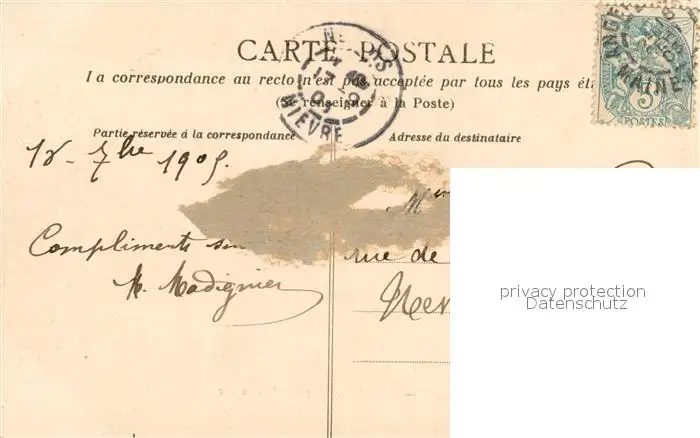 CARTE POSTALE
La correspondance au recto n'est pas acceptée par tous les pays ét
(Se renseigner à la Poste)
NIEVRE
Partie réservée à la correspondance
Adresse du destinataire
18 - 7bre 1905.
Compliments
M. Madignier
rue de
Nev
POSTES
privacy protection
Datenschutz